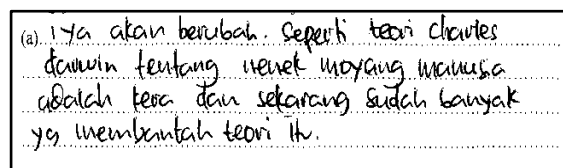 (a). iya akan berubah. Seperti teori charles
darwin tentang nenek moyang manusia
adalah kera dan sekarang sudah banyak
yg membantah teori itu.